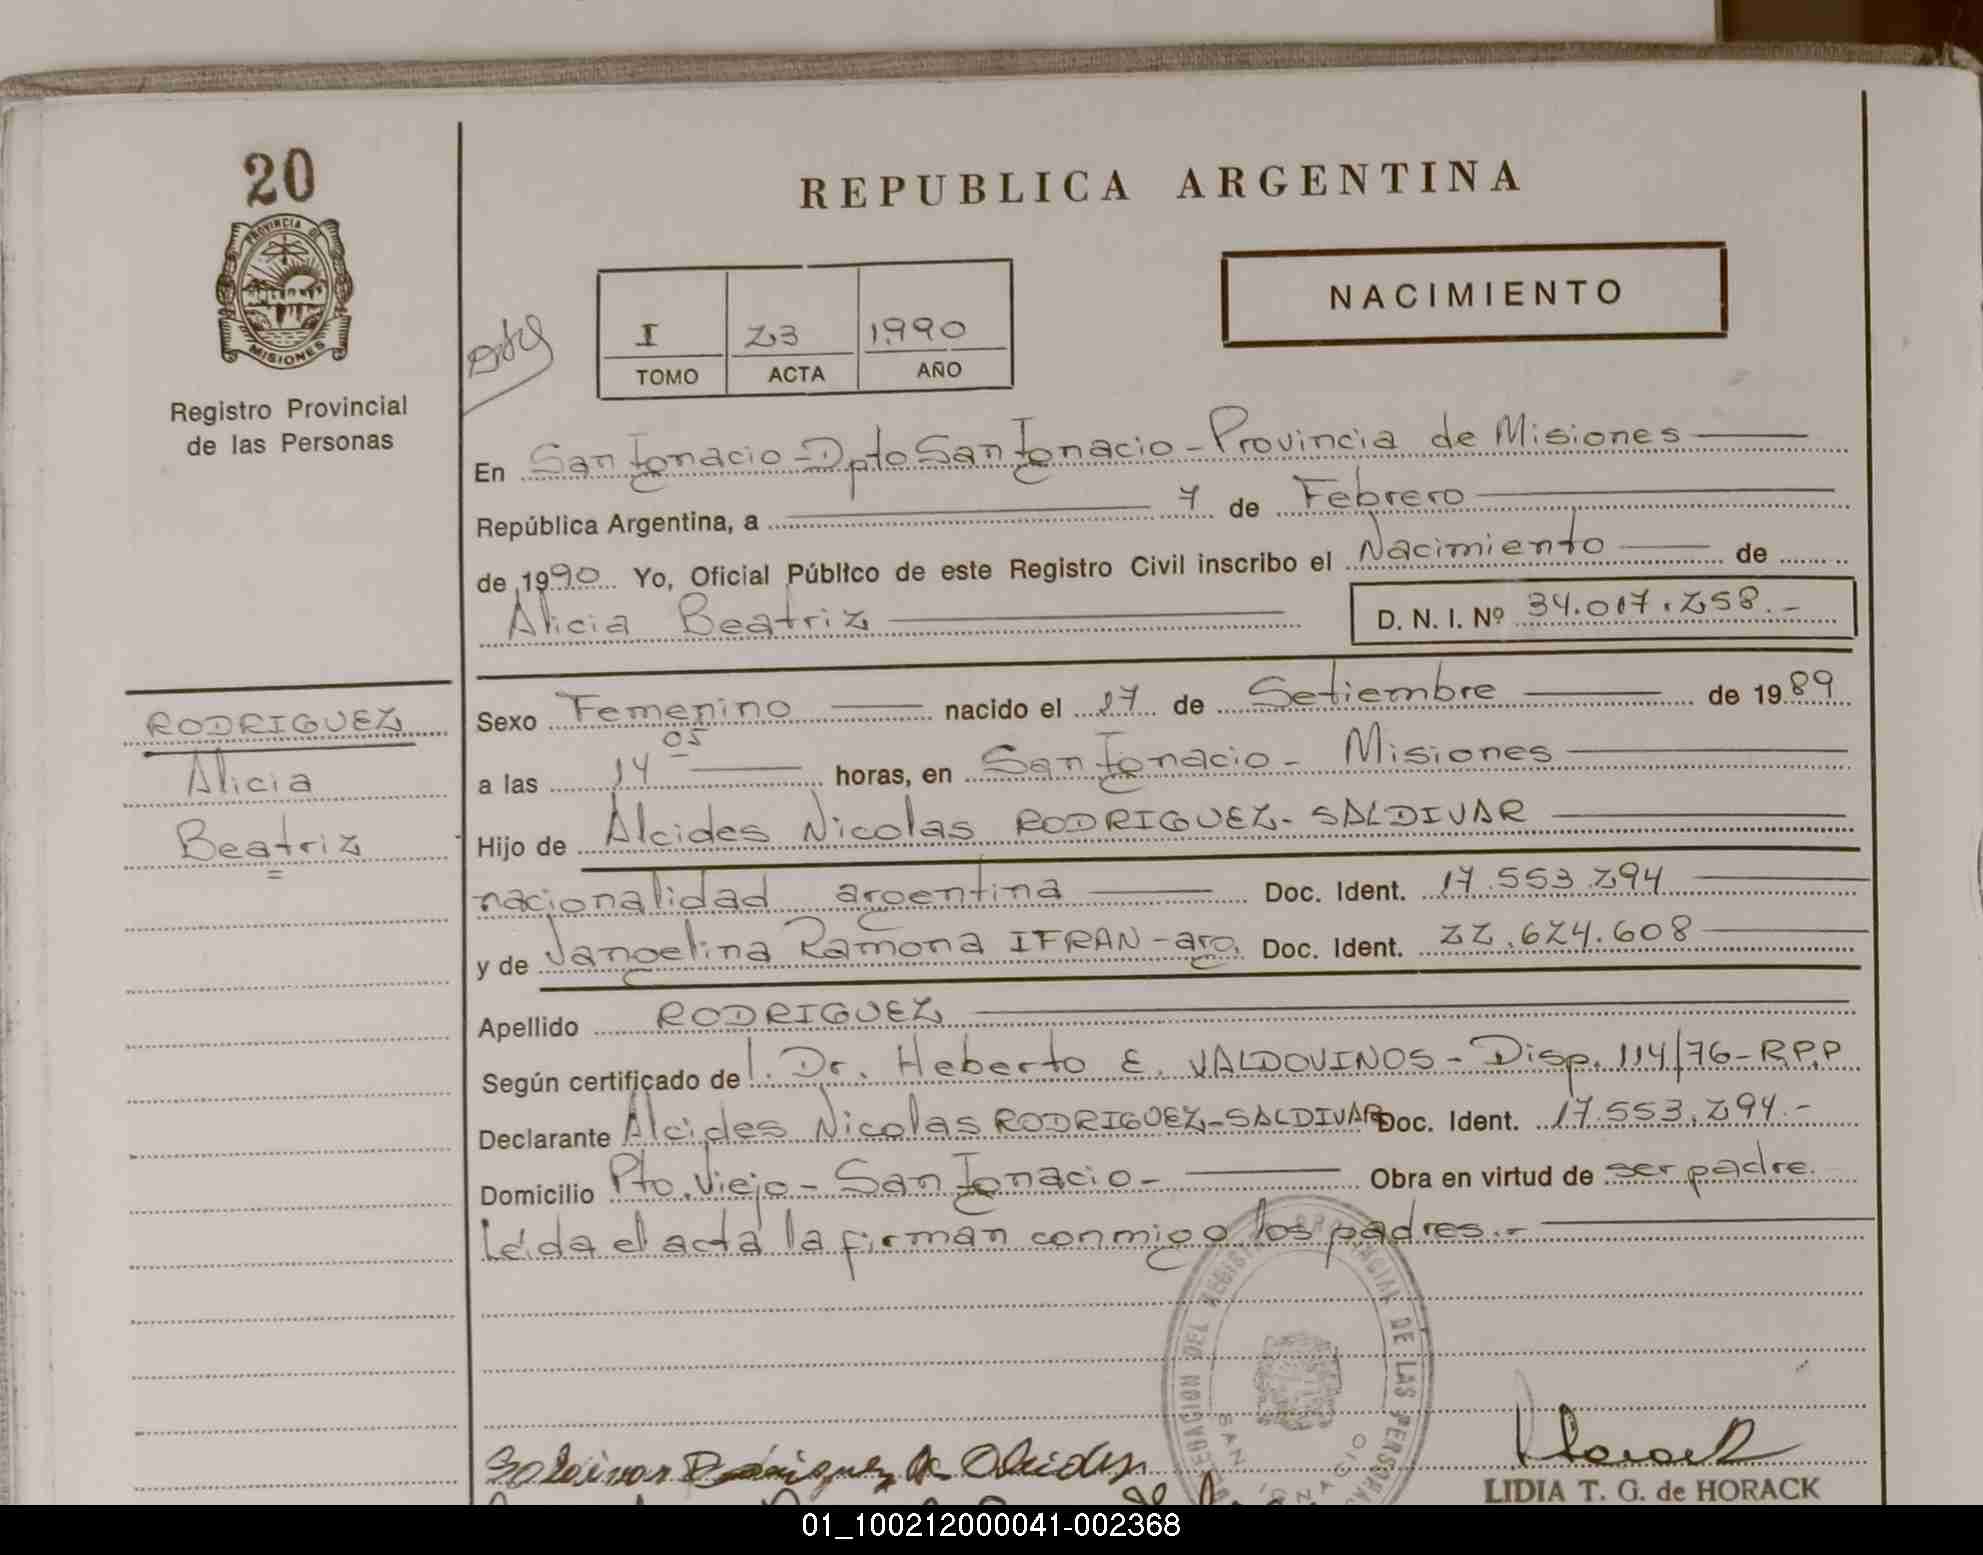 20
REPUBLICA ARGENTINA
PROVINCIA DE
MISIONES
Registro Provincial
de las Personas
I 23 1990
TOMO ACTA AÑO
NACIMIENTO
En San Ignacio - Dpto San Ignacio - Provincia de Misiones
República Argentina, a 7 de Febrero
de 1990 Yo, Oficial Público de este Registro Civil inscribo el Nacimiento de
Alicia Beatriz D. N. I. Nº 34.017.258.-
RODRIGUEZ
Alicia
Beatriz
Sexo Femenino nacido el 17 de Setiembre de 1989
a las 14 05 horas, en San Ignacio - Misiones
Hijo de Alcides Nicolas RODRIGUEZ - SALDIVAR
nacionalidad argentina Doc. Ident. 17.553.294
y de Vangelina Ramona IFRAN - arg. Doc. Ident. 22.624.608
Apellido RODRIGUEZ
Según certificado del. Dr. Heberto E. VALDOVINOS - Disp. 114/76 - R.P.P
Declarante Alcides Nicolas RODRIGUEZ - SALDIVAR Doc. Ident. 17.553.294.-
Domicilio Pto. Viejo - San Ignacio - Obra en virtud de ser padre.
Leída el acta la firman conmigo los padres.-
DELEGACION DEL REGISTRO PROVINCIAL DE LAS PERSONAS
SAN IGNACIO
LIDIA T. G. de HORACK
01_100212000041-002368